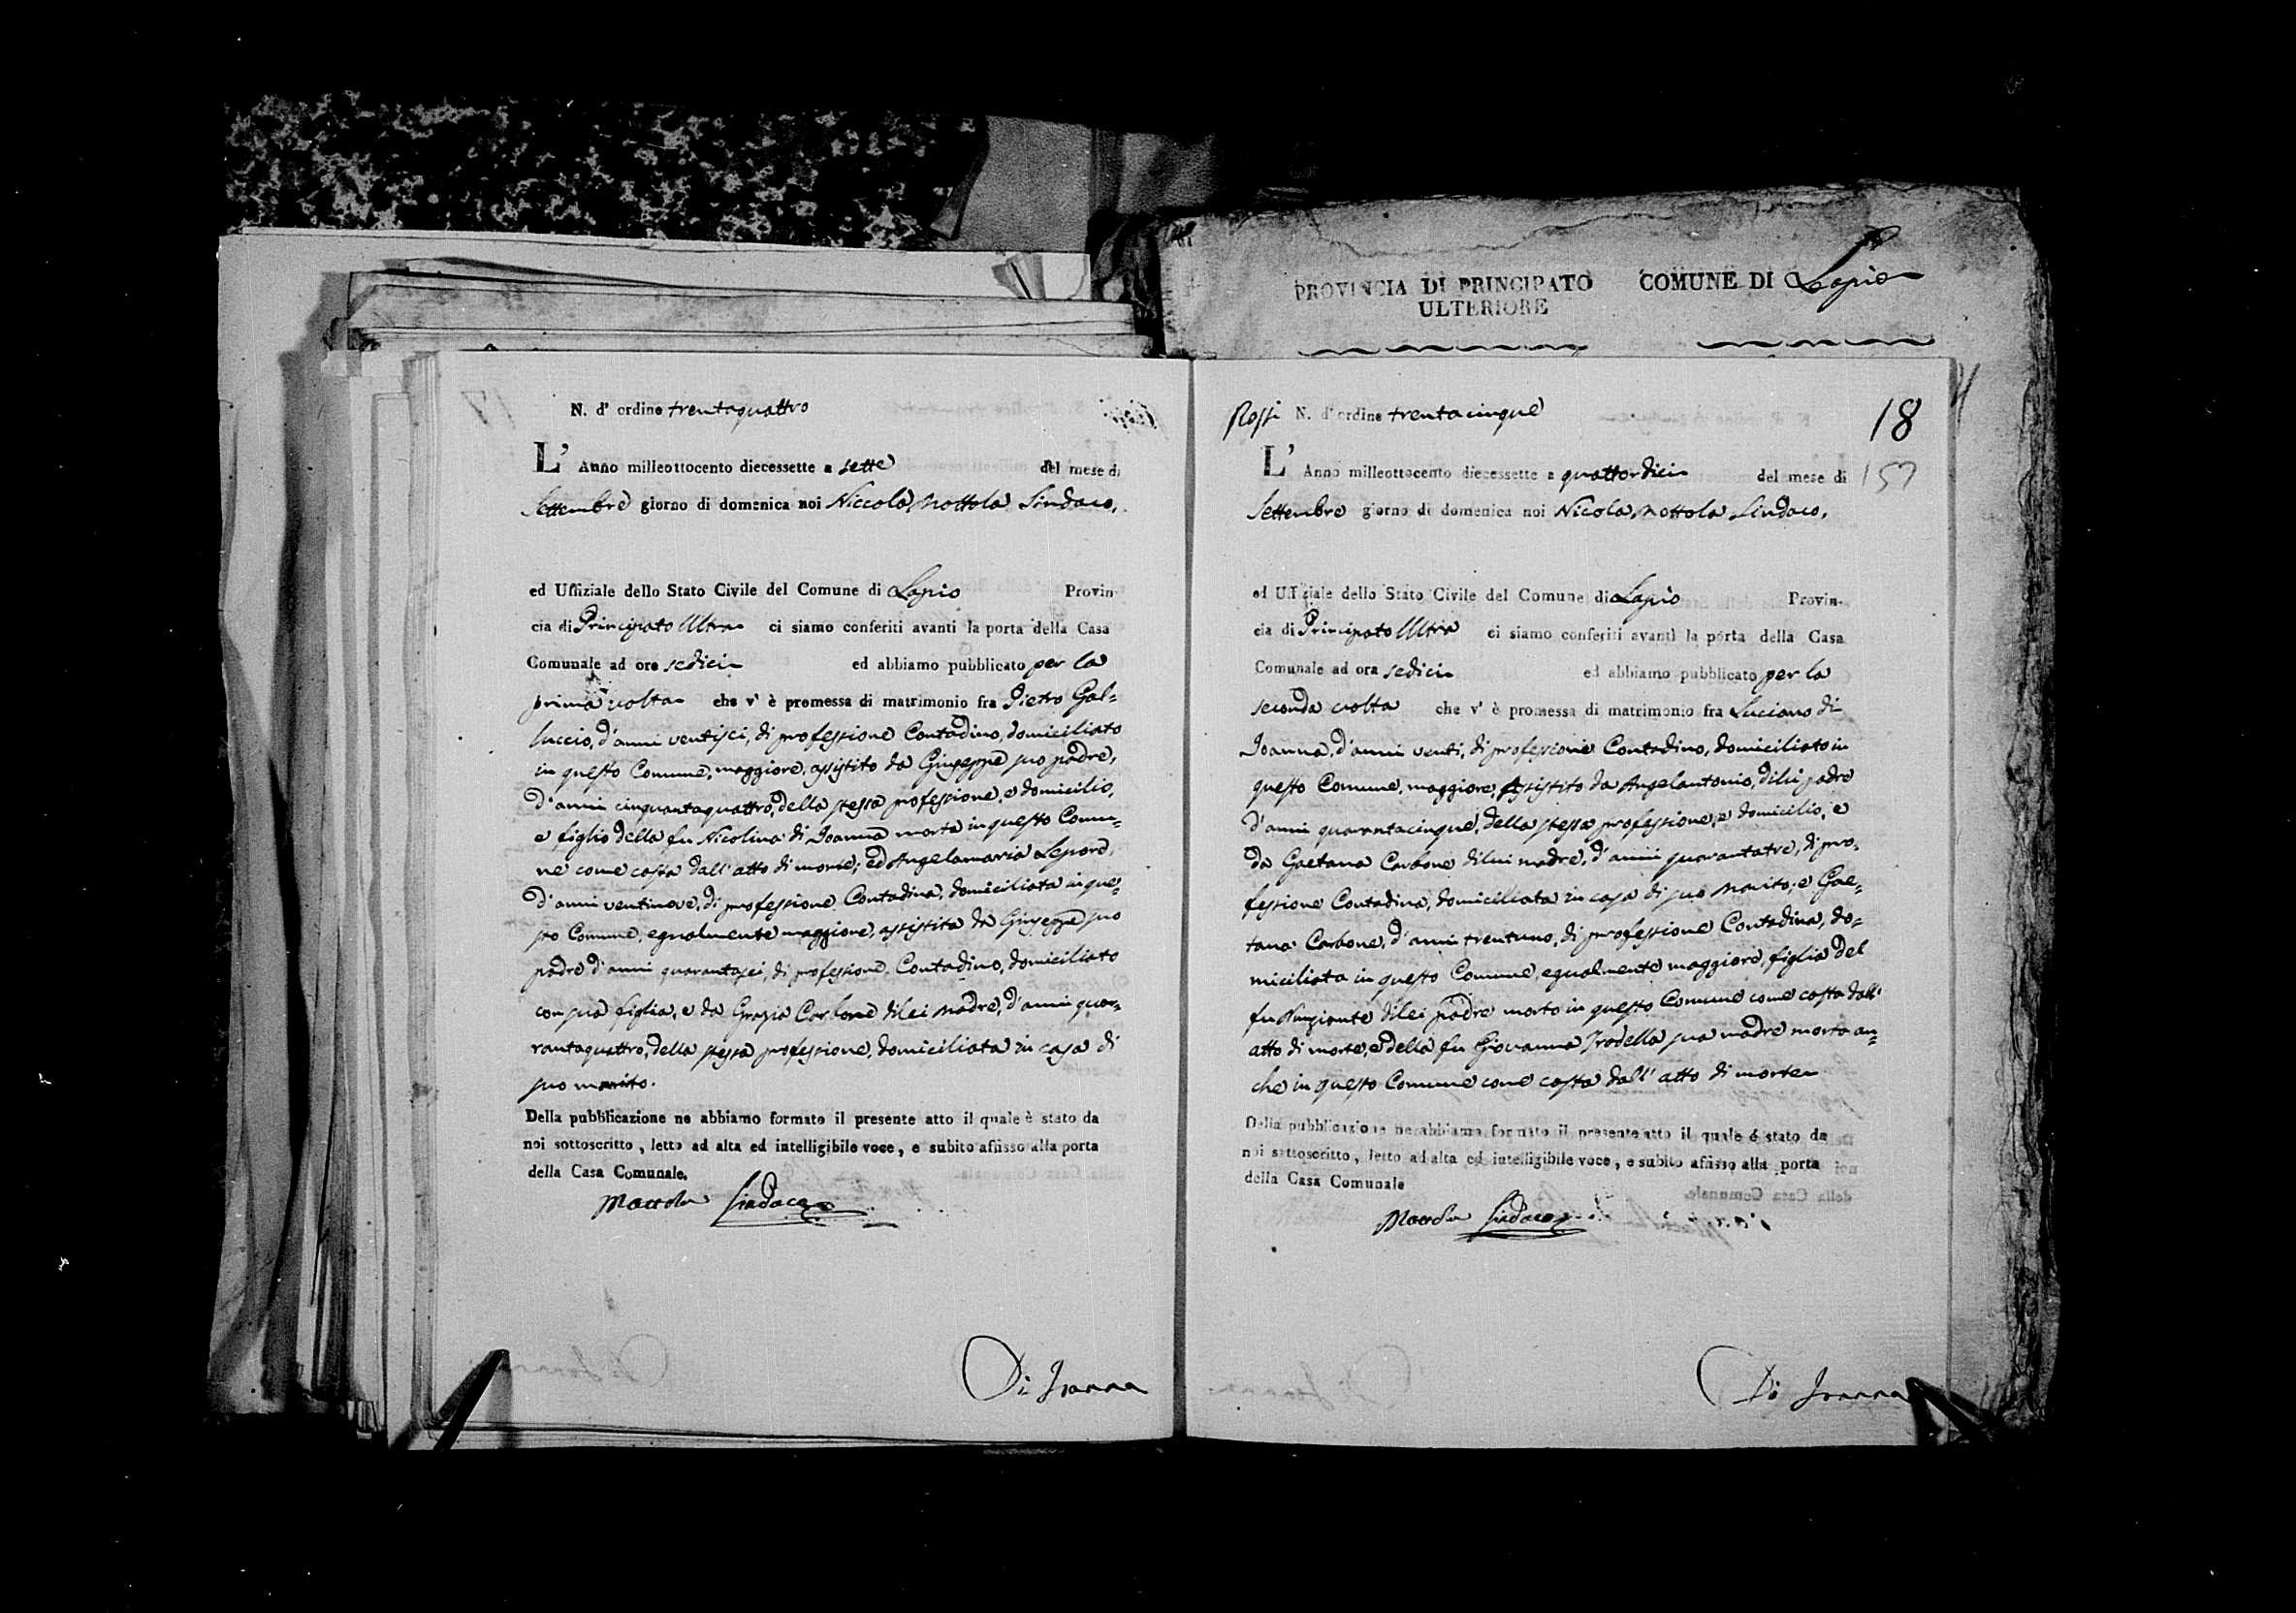 PROVINCIA DI PRINCIPATO
ULTERIORE
COMUNE DI Lapio
N. d' ordine trentaquattro
L' Anno milleottocento diecessette a sette del mese di
Settembre giorno di domenica noi Niccola Mottola Sindaco,
ed Uffiziale dello Stato Civile del Comune di Lapio Provin-
cia di Principato Ultra ci siamo conferiti avanti la porta della Casa
Comunale ad ore sedici ed abbiamo pubblicato per la
prima volta che v' è promessa di matrimonio fra Pietro Gal=
luccio, d'anni ventisei, di professione Contadino, domiciliato
in questo Comune, maggiore, assistito da Giuseppe suo padre,
d'anni cinquantaquattro, della stessa professione, e domicilio,
e figlio della fu Nicolina di Joanna morta in questo Comu=
ne come costa dall' atto di morte; ed Angelamaria Lepore,
d'anni ventinove, di professione Contadina, domiciliata in que=
sto Comune, egualmente maggiore, assistita da Giuseppe suo
padre d'anni quarantasei, di professione Contadino, domiciliato
con sua figlia, e da Grazia Carbone di lei madre, d'anni qua=
rantaquattro, della stessa professione, domiciliata in casa di
suo marito.
Della pubblicazione ne abbiamo formato il presente atto il quale è stato da
noi sottoscritto , letto ad alta ed intelligibile voce , e subito affisso alla porta
della Casa Comunale.
Mottola Sindaco
Di Joanna
Rossi N. d' ordine trentacinque
18
157
L' Anno milleottocento diecessette a quattordici del mese di
Settembre giorno di domenica noi Nicola Mottola Sindaco,
ed Uffiziale dello Stato Civile del Comune di Lapio Provin-
cia di Principato Ultra ci siamo conferiti avanti la porta della Casa
Comunale ad ora sedici ed abbiamo pubblicato per la
seconda volta che v' è promessa di matrimonio fra Luciano di
Joanna, d'anni venti, di professione Contadino, domiciliato in
questo Comune, maggiore, assistito da Angelantonio, di lui padre
d'anni quarantacinque, della stessa professione, e domicilio, e
da Gaetana Carbone di lui madre, d'anni quarantatre, di pro=
fessione Contadina, domiciliata in casa di suo marito; e Gae=
tana Carbone, d'anni trentuno, di professione Contadina, do=
miciliata in questo Comune, egualmente maggiore, figlia del
fu Nunziante di lei padre morto in questo Comune come costa dall'
atto di morte, e della fu Giovanna Trodella sua madre morta an=
che in questo Comune come costa dall' atto di morte
Della pubblicazione ne abbiamo formato il presente atto il quale é stato da
noi sottoscritto , letto ad alta ed intelligibile voce , e subito affisso alla porta
della Casa Comunale
Mottola Sindaco
Di Joanna